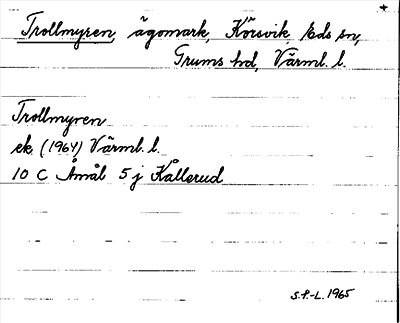 Trollmyren, ägomark, Körsvik, Eds sn,
Grums hd, Värml. l.
Trollmyren
ek. (1964) Värml. l.
10 C Åmål 5 j Kållerud
S.P.-L. 1965